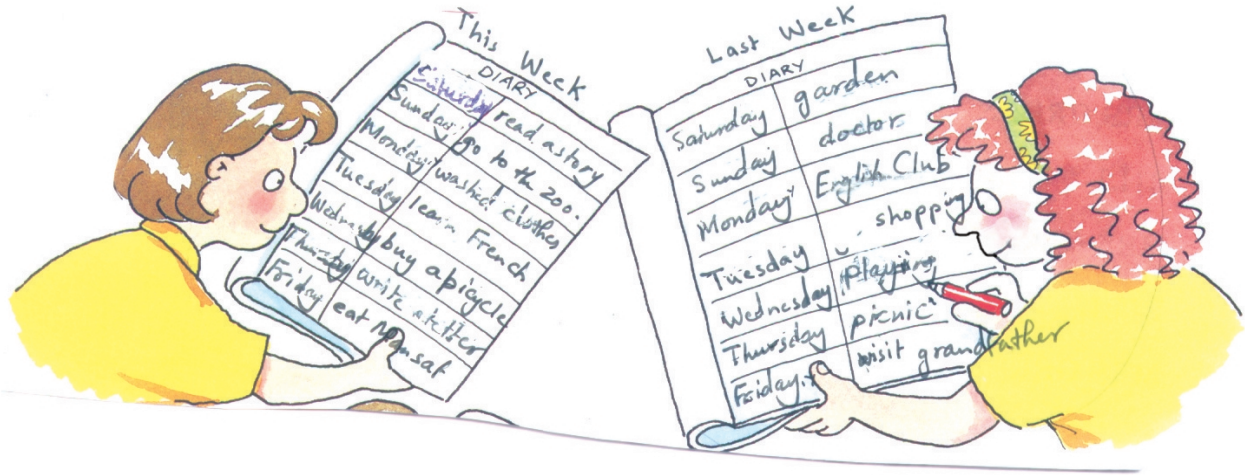 This Week
DIARY
Saturday read a story
Sunday go to the zoo.
Monday washed clothes
Tuesday learn French
Wednesday buy a bicycle
Thursday write a letter
Friday eat Mansaf
Last Week
DIARY
Saturday garden
Sunday doctor
Monday English Club
Tuesday shopping
Wednesday playing
Thursday picnic
Friday visit grandfather